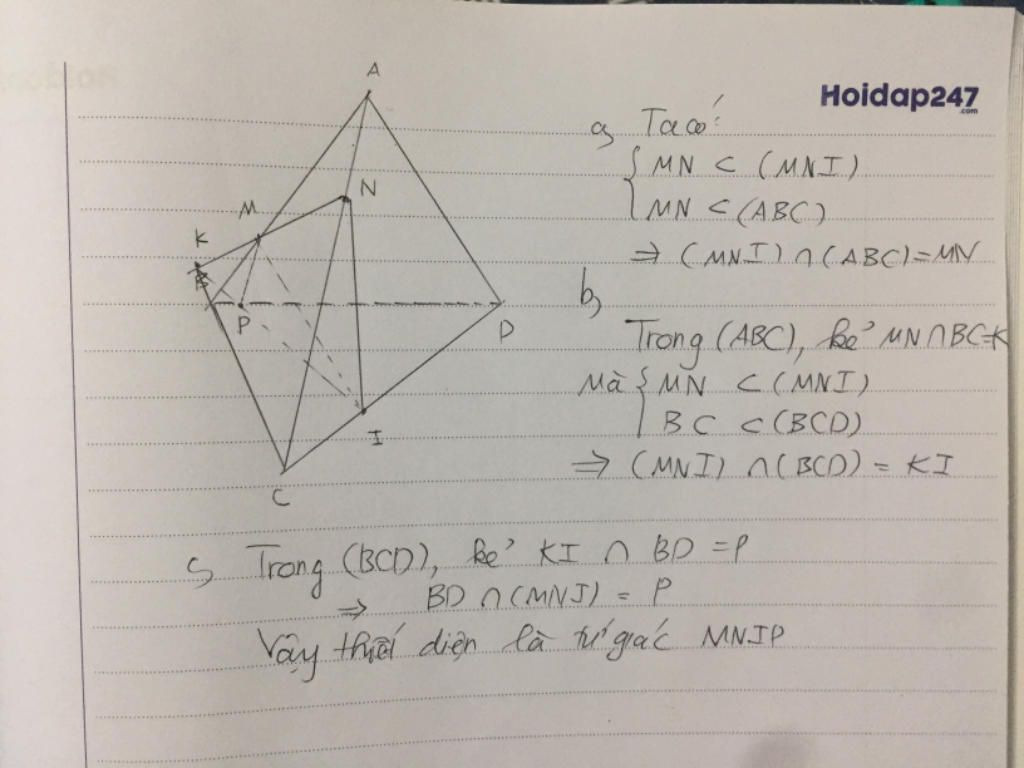 A
Hoidap247
.com
a, Ta có:
MN ⊂ (MNI)
N
M
MN ⊂ (ABC)
K
⇒ (MNI) ∩ (ABC) = MN
B
b,
P
D
Trong (ABC), kẻ MN ∩ BC = K
Mà { MN ⊂ (MNI)
BC ⊂ (BCD)
I
⇒ (MNI) ∩ (BCD) = KI
C
c, Trong (BCD), kẻ KI ∩ BD = P
⇒ BD ∩ (MNI) = P
Vậy thiết diện là tứ giác MNIP